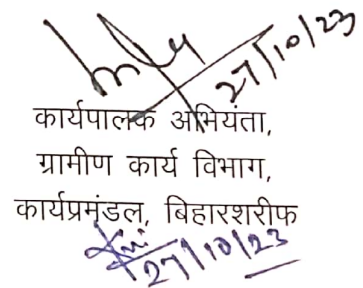 27/10/23
कार्यपालक अभियंता,
ग्रामीण कार्य विभाग,
कार्यप्रमंडल, बिहारशरीफ
27/10/23